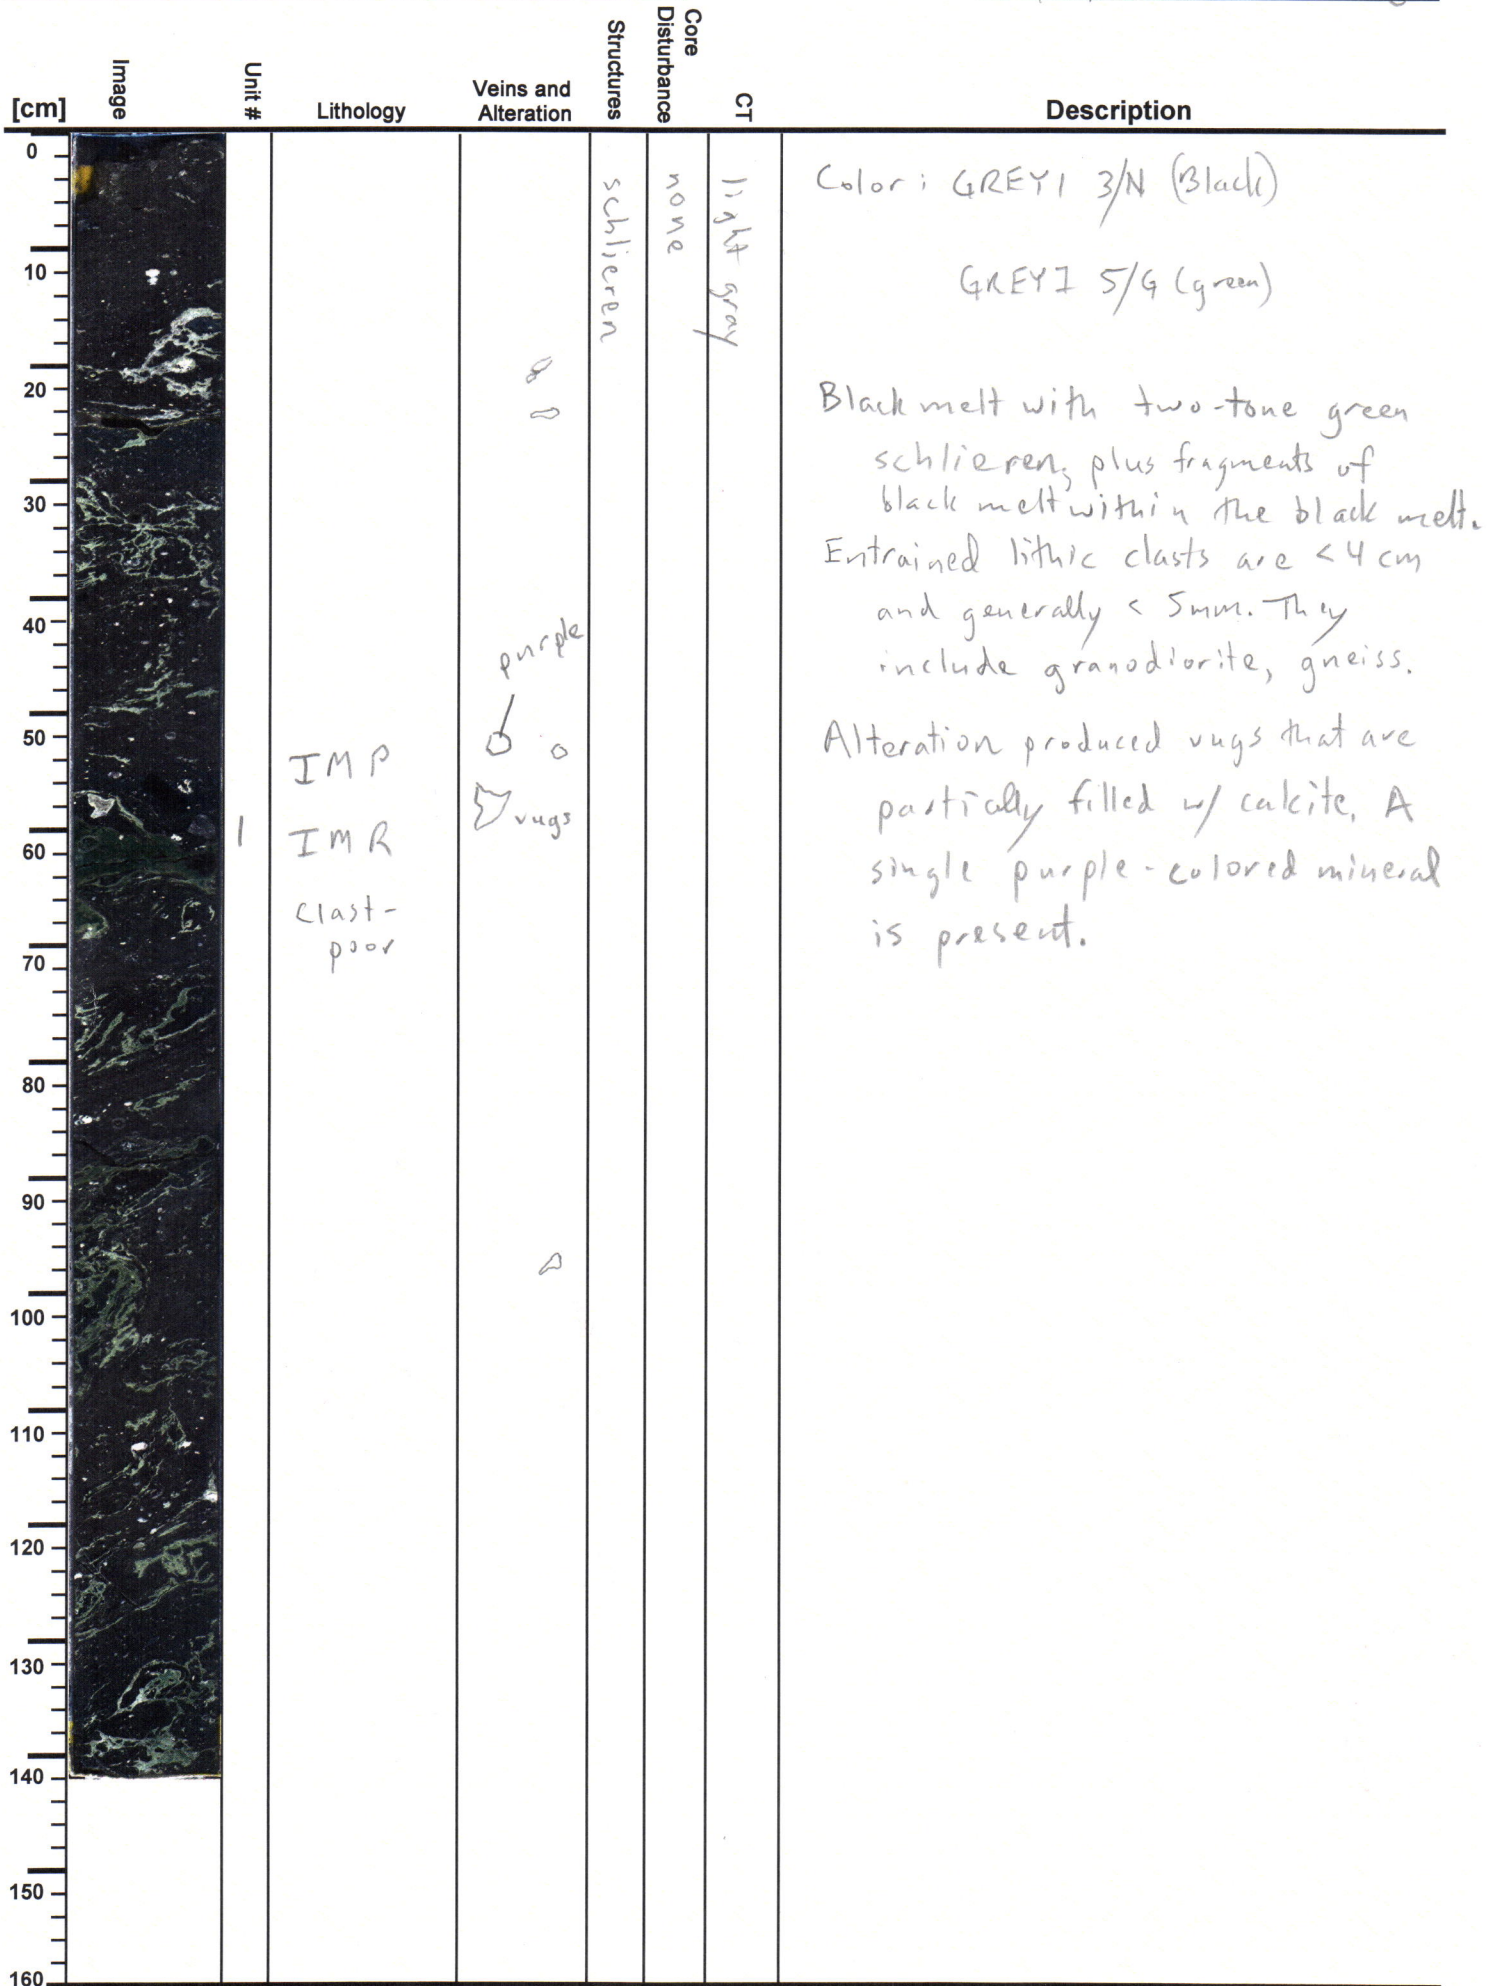 [cm]
Image
Unit #
Lithology
Veins and
Alteration
Structures
Core
Disturbance
CT
Description
0
10
20
30
40
50
60
70
80
90
100
110
120
130
140
150
160
1
IMP
IMR
clast-
poor
purple
vugs
schlieren
none
light gray
Color: GREY1 3/N (Black)
GREY1 5/G (green)
Black melt with two-tone green
schlieren, plus fragments of
black melt within the black melt.
Entrained lithic clasts are < 4 cm
and generally < 5mm. They
include granodiorite, gneiss.
Alteration produced vugs that are
partially filled w/ calcite. A
single purple-colored mineral
is present.